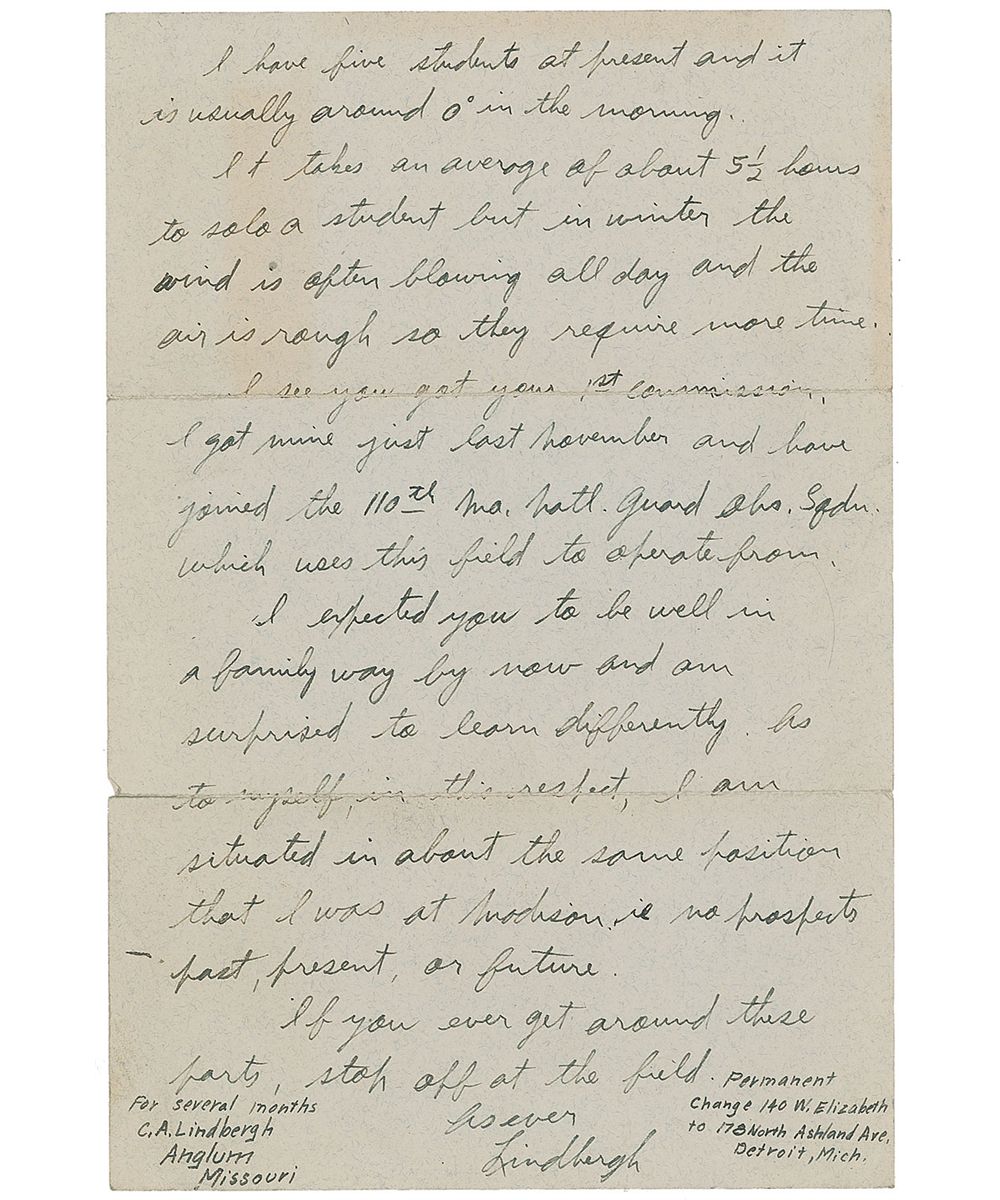 I have five students at present and it
is usually around 0° in the morning.
It takes an average of about 5½ hours
to solo a student but in winter the
wind is often blowing all day and the
air is rough so they require more time.
I see you got your 1st commission,
I got mine just last November and have
joined the 110th Mo. Natl. Guard Obs. Sqdn.
which uses this field to operate from.
I expected you to be well in
a family way by now and am
surprised to learn differently. As
to myself, in this respect, I am
situated in about the same position
that I was at Madison. ie no prospects
past, present, or future.
If you ever get around these
parts, stop off at the field.
As ever
Lindbergh
For several months
C.A. Lindbergh
Anglum
Missouri
Permanent
Change 140 W. Elizabeth
to 178 North Ashland Ave.
Detroit, Mich.